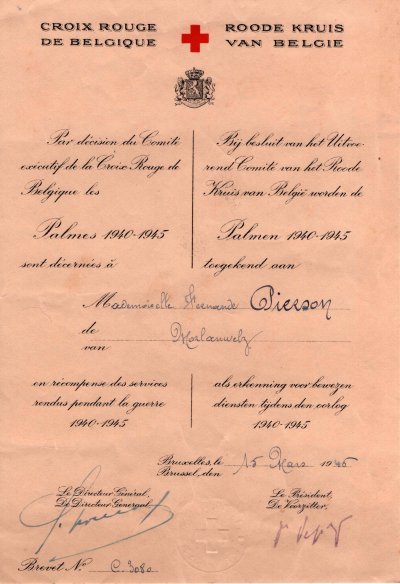 CROIX ROUGE
DE BELGIQUE
ROODE KRUIS
VAN BELGIE
Par décision du Comité
exécutif de la Croix Rouge de
Belgique les
Palmes 1940-1945
sont décernées à
Bij besluit van het Uitvoe-
rend Comité van het Roode
Kruis van België worden de
Palmen 1940-1945
toegekend aan
Mademoiselle Fernande Pierson
de
van
Morlanwelz
en récompense des services
rendus pendant la guerre
1940-1945
als erkenning voor bewezen
diensten tijdens den oorlog
1940-1945
Bruxelles, le
Brussel, den
15 Mars 1946
Le Directeur Général,
De Directeur Generaal,
Le Président,
De Voorzitter,
Brevet No C. 3080